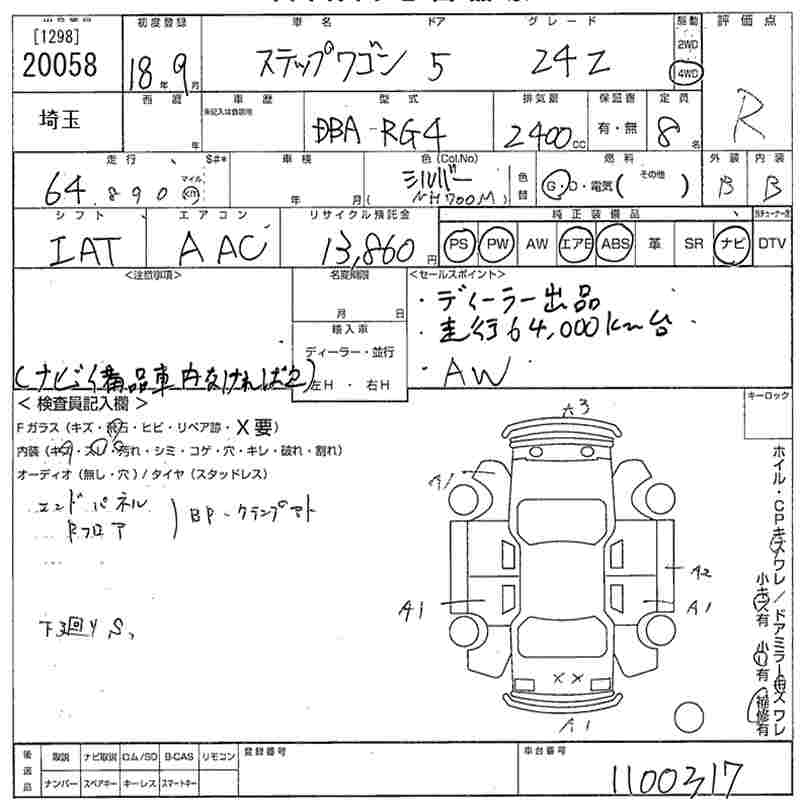 [1298]
20058
初度登録
18年9月
車名
ステップワゴン
ドア
5
グレード
24Z
駆動
2WD
4WD
評価点
R
埼玉
西暦
年
車歴
未記入は自家用
型式
DBA-RG4
排気量
2400CC
保証書
有・無
定員
8名
走行
64,890
マイル
km
S#*
車検
年 月
色(Col.No)
シルバー
(NH700M)
色替
燃料
G・D・電気( その他 )
外装
B
内装
B
シフト
IAT
エアコン
AAC
リサイクル預託金
13,860円
純正装備品
PS PW AW エアB ABS 革 SR ナビ DTV
<注意事項>
名変期限
月 日
輸入車
ディーラー・並行
左H・右H
<セールスポイント>
・ディーラー出品
・走行64,000km台
・AW
<検査員記入欄>
Fガラス(キズ・飛石・ヒビ・リペア跡・X要)
内装(キズ・スレ・汚れ・シミ・コゲ・穴・キレ・破れ・割れ)
オーディオ(無し・穴)/タイヤ(スタッドレス)
エンドパネル
Rフロア
BP・クランプアト
下3回りS,
A3
A1
A2
A1
A1
XX
A1
キーロック
ホイル・CPキズワレ/ドアミラーキズワレ
小キズ有 小凹有 補修有
後送品
取説 ナビ取説 ロム/SD B-CAS リモコン
ナンバー スペアキー キーレス スマートキー
登録番号
車台番号
1100317